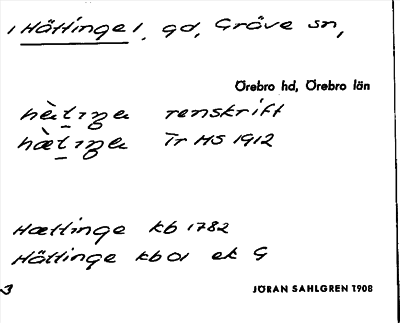 1 Hättinge 1, gd, Gräve sn,
Örebro hd, Örebro län
renskrift
Tr HS 1912
Hættinge kb 1782
Hättinge kb01 ek G
3
JÖRAN SAHLGREN 1908